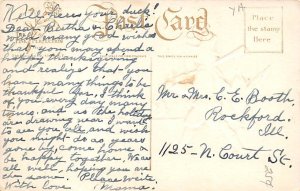 Well here's your duck!
Post Card
YA
Place
the stamp
Here
Dear Bertha & Charlie
with many good wishes
that you may spend a
happy thanksgiving
and realize that you
have many things to be
thankful for. I think
of you every day many
times, and as the holidays
are drawing near I want
to see you all, and wish
you might be as years
gone by, come home &
be happy together. We are
all well, hoping you are
the same. Please Write
With love Mama.
Mr. Mrs. C. E. Booth
Rockford.
Ill.
1125-N. Court St.